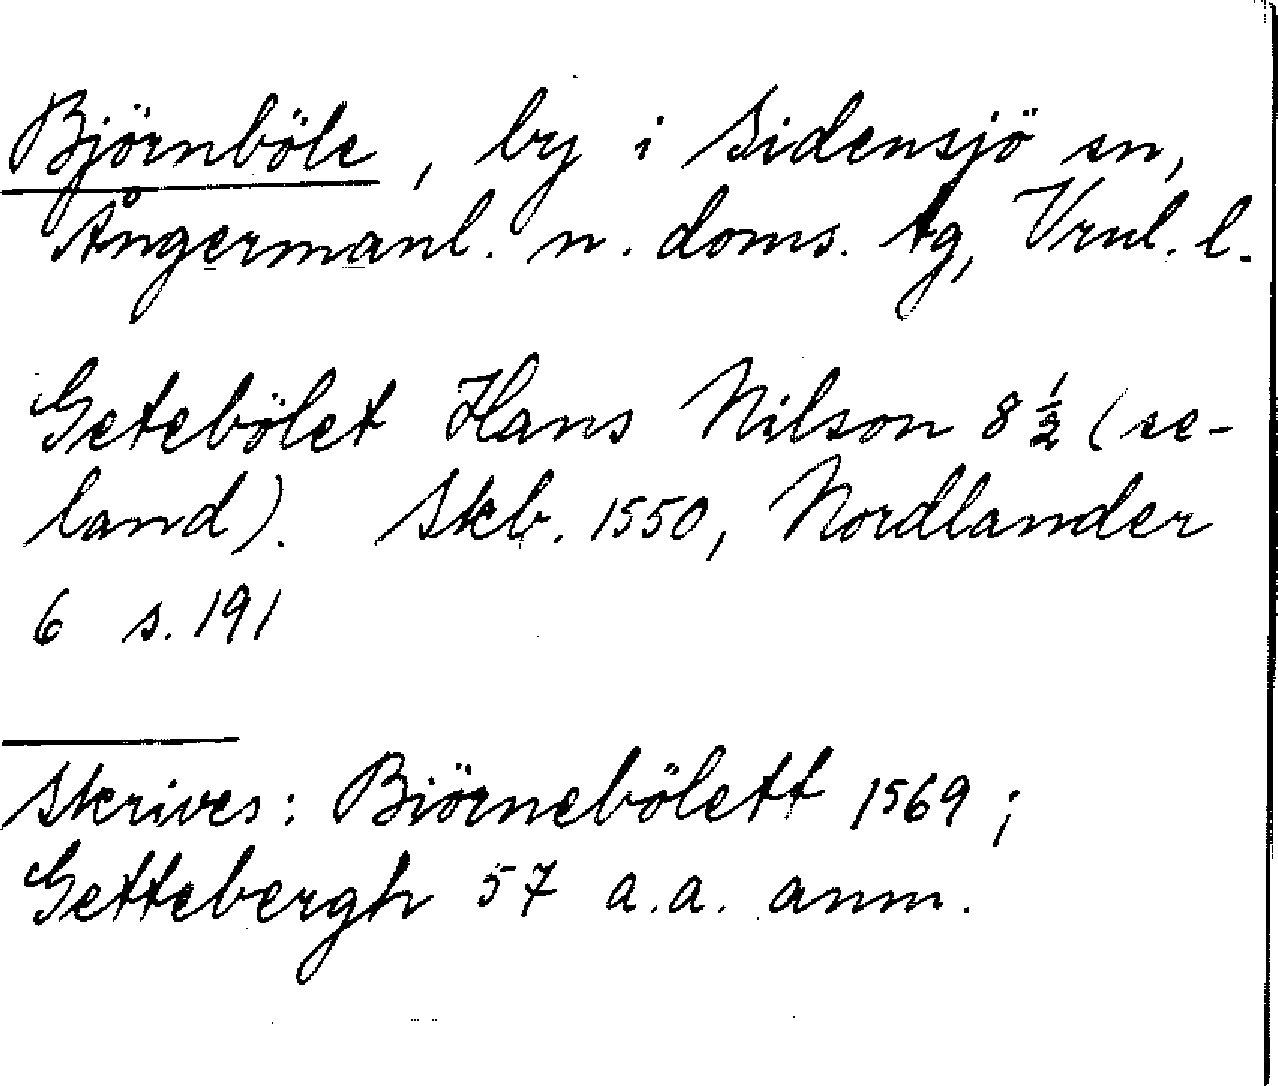 Björnböle, by i Sidensjö sn,
Ångermanl. n. doms. tg, Vrnl. l.
Getebölet Hans Nilson 8 ½ (se-
land). Skb. 1550, Nordlander
6 s. 191
Skrives: Biörnebölett 1569;
Gettebergh 57 a.a. anm.